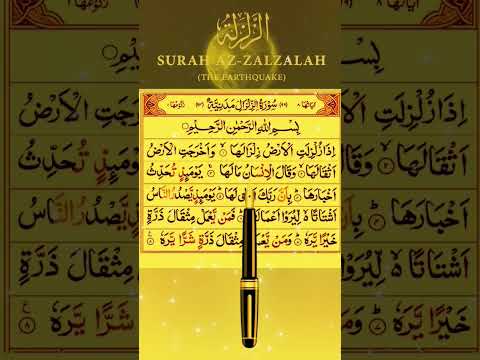 الزلزلة
SURAH AZ-ZALZALAH
(THE EARTHQUAKE)
سُوْرَةُ الزِّلْزَالِ مَدَنِيَّةٌ
بِسْمِ اللّٰهِ الرَّحْمٰنِ الرَّحِيْمِ
اِذَا زُلْزِلَتِ الْاَرْضُ زِلْزَالَهَا وَاَخْرَجَتِ الْاَرْضُ
اَثْقَالَهَا وَقَالَ الْاِنْسَانُ مَا لَهَا يَوْمَئِذٍ تُحَدِّثُ
اَخْبَارَهَا بِاَنَّ رَبَّكَ لَهَا يَوْمَئِذٍ يَّصْدُرُ النَّاسُ
اَشْتَاتًا لِّيُرَوْا اَعْمَالَهُمْ فَمَنْ يَّعْمَلْ مِثْقَالَ ذَرَّةٍ
خَيْرًا يَّرَهٗ وَمَنْ يَّعْمَلْ مِثْقَالَ ذَرَّةٍ شَرًّا يَّرَهٗ